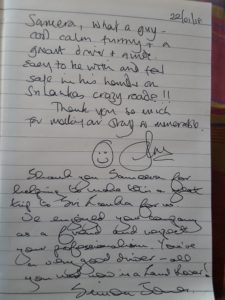 Sameera, what a guy -
and calm funny + a
great driver + guide.
easy to be with and feel
safe in his hands on
Sri Lankas crazy roads!!
Thank you so much
for making our stay so memorable.
Thank you Sameera for
helping to make this a great
trip to Sri Lanka for us
We enjoyed your company
as a friend and respect
your professionalism. You're
a very good driver - all
you need now is a Land Rover!